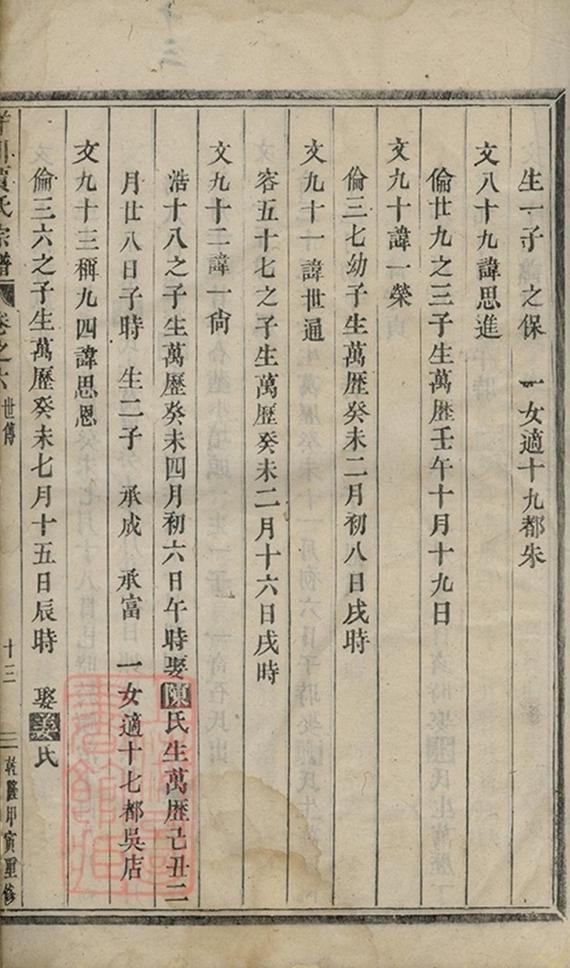 生一子 之保 一女適十九都朱
文八十九諱思進
倫廿九之三子生萬歷壬午十月十九日
文九十諱一榮
倫三七幼子生萬歷癸未二月初八日戌時
文九十一諱世通
容五十七之子生萬歷癸未二月十六日戌時
文九十二諱一尙
浩十八之子生萬歷癸未四月初六日午時娶陳氏生萬歷己丑二
月廿八日子時 生二子 承成 承富 一女適十七都吳店
文九十三稱九四諱思恩
倫三六之子生萬歷癸未七月十五日辰時 娶姜氏
賈氏宗譜 卷之六 世傳 十三 乾隆甲寅重修